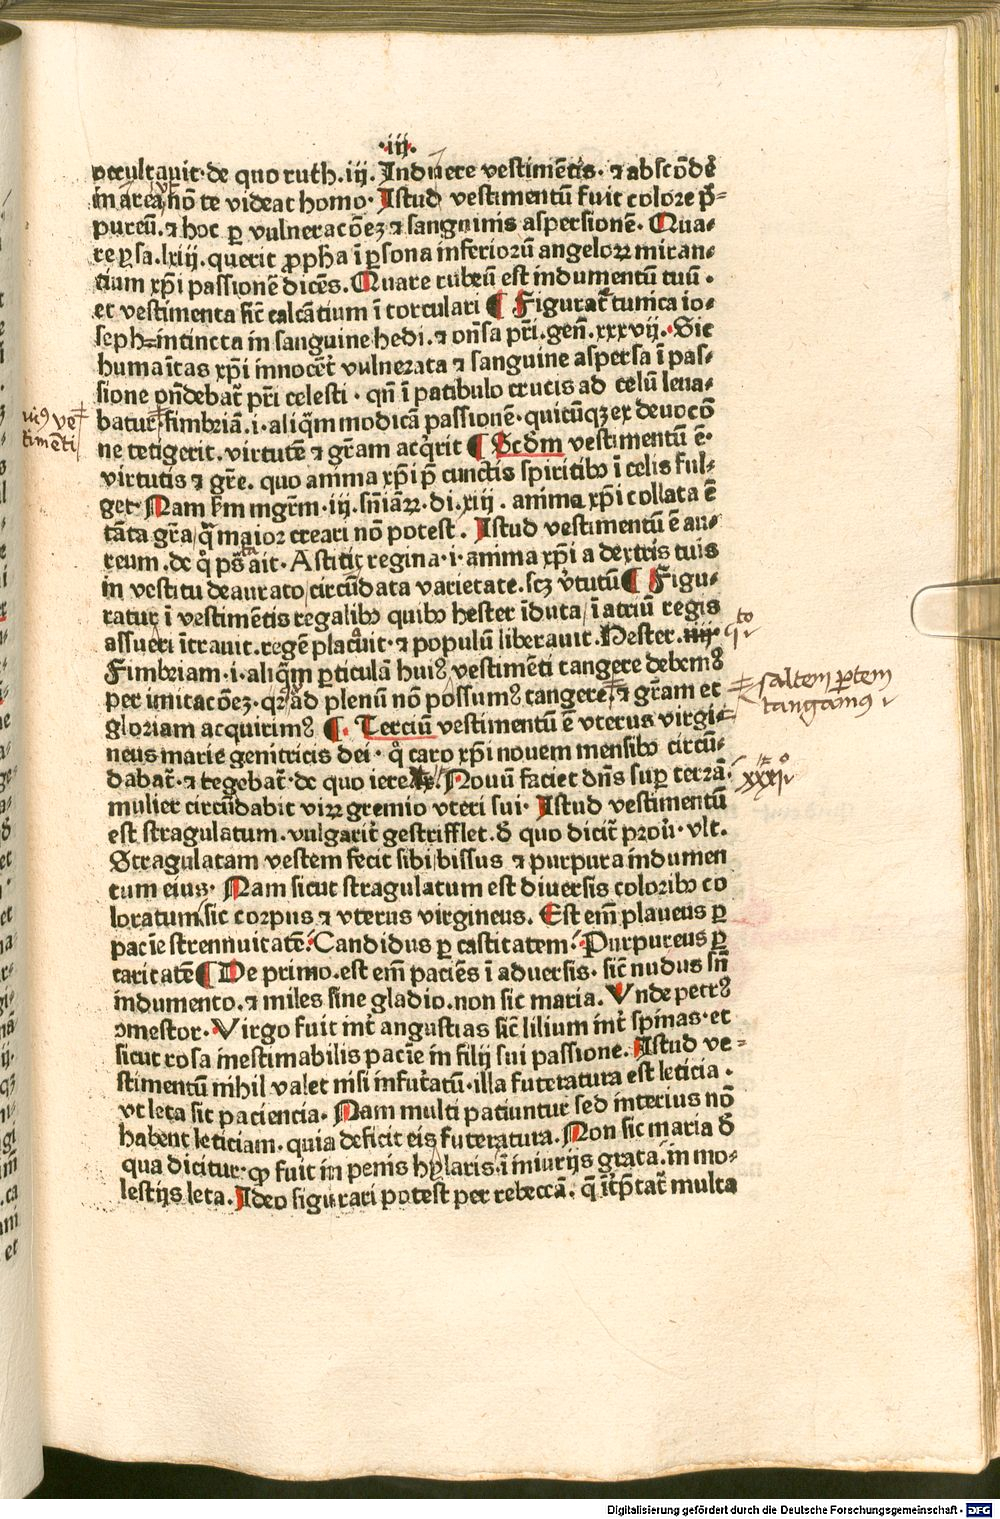 .iij.
occultauit. de quo ruth. iij. Induere vestimētis. ⁊ abscōde
in area nō te videat homo. Istud vestimentū fuit colore p̄=
pureū. ⁊ hoc ꝑ vulneracōeꝫ ⁊ sanguinis aspersionē. Qua=
re ysa. lxiij. querit ꝓpha ī ꝑsona inferiorū angeloꝝ miran=
tium xp̄i passionē dicēs. Quare rubeū est indumentū tuū.
et vestimenta sic̄ calcātium ī torculari ¶ Figurat̄ tunica io=
seph intincta in sanguine hedi. ⁊ on̄sa pr̄i. gen̄. xxxvij. Sic
humaītas xp̄i innocēt̄ vulnerata ⁊ sanguine aspersa ī pas=
sione on̄debat̄ pr̄i celesti. qn̄ ī patibulo crucis ad celū leua=
batur. fimbriā .i. aliq̄m modicā passionē. quicūqꝫ ex deuocō
ne tetigerit. virtutē ⁊ gr̄am acq̄rit ¶ Scd̄m vestimentū ē.
virtutis ⁊ gr̄e. quo amima xp̄i p̄ cunctis spiritibꝰ ī celis ful=
get. Nam km̄ mgr̄m .iij. sn̄iaꝝ. di. xiij. anima xp̄i collata ē
tāta gr̄a q̄ maior creari nō potest. Istud vestimentū ē au=
reum. de q̄ ps̄ ait. Astitit regina .i. anima xp̄i a dextris tuis
in vestitu deaurato circūdata varietate. scꝫ v̄tutū ¶ Figu=
ratur ī vestimētis regalibꝰ quibꝰ hester īduta ī atriū regis
assueri ītrauit. regē placauit. ⁊ populū liberauit. Hester. iiij.
Fimbriam .i. aliq̄m ꝑticulā huiꝰ vestimēti tangere debemꝰ
per imitacōeꝫ. qꝛ ad plenū nō possumꝰ tangere. ⁊ gr̄am et
gloriam acquirimꝰ ¶ Terciū vestimentū ē vterus virgi=
neus marie genitricis dei. q̄ caro xp̄i nouem mensibꝰ circū=
dabat̄. ⁊ tegebat̄. de quo iere. Nouū faciet dn̄s suꝑ terrā.
mulier circūdabit viꝝ gremio vteri sui. Istud vestimentū
est stragulatum. vulgarit̄ gestrifflet. d̄ quo dicit̄ prou̅. vlt.
Stragulatam vestem fecit sibi bissus ⁊ purpura indumen
tum eius. Nam sicut stragulatum est diuersis coloribꝰ co
loratum. sic corpus ⁊ vterus virgineus. Est em̄ plaueus ꝑ
pacīe strennuitatē. Candidus ꝑ castitatem. Purpureus ꝑ
caritatē ¶ De primo. est em̄ paciēs ī aduersis. sic̄ nudus sn̄
indumento. ⁊ miles sine gladio. non sic maria. Vnde petrꝰ
ↄmestor. Virgo fuit int̄ angustias sic̄ lilium int̄ spinas. et
sicut rosa inestimabilis pacīe in filij sui passione. Istud ve=
stimentū nihil valet nisi infut̄atū. illa futeratura est leticia.
vt leta sit paciencia. Nam multi patiuntur sed interius nō
habent leticiam. quia deficit eis futeratura. Non sic maria d̄
qua dicitur. ꝙ fuit in penis hylaris. ī iniurijs grata. in mo=
lestijs leta. Ideo figurari potest per rebeccā. q̄ īt̄p̄tat̄ multa
timēti
to
saltem ꝑtem
tangamꝰ
xxxi
Digitalisierung gefördert durch die Deutsche Forschungsgemeinschaft - DFG